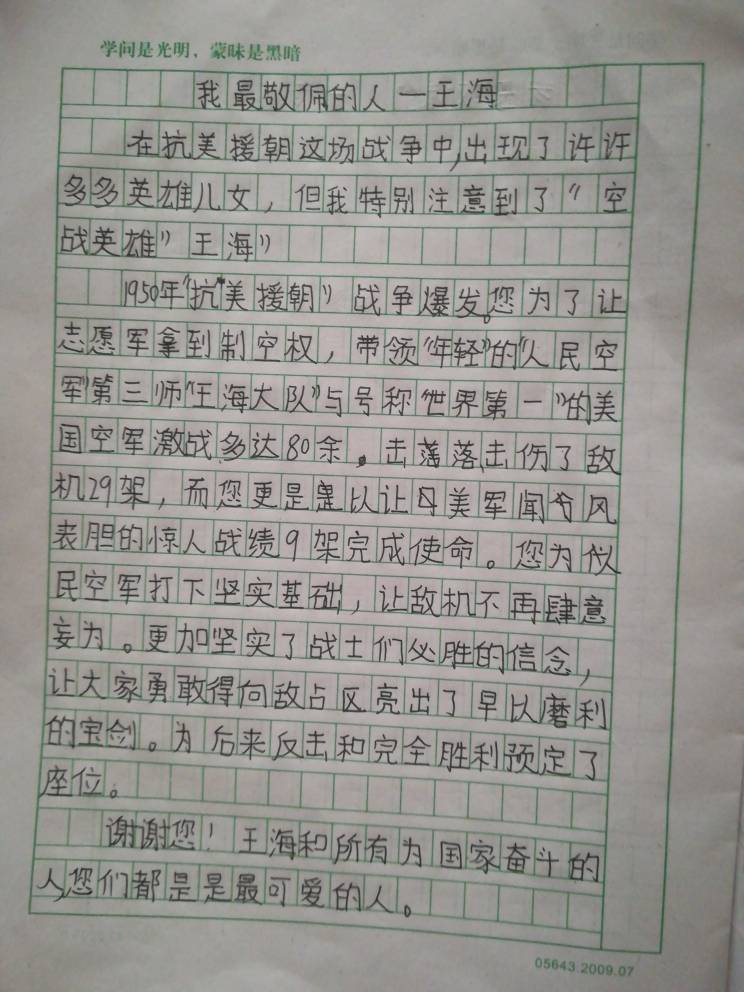 学问是光明，蒙昧是黑暗
我最敬佩的人一王海
在抗美援朝这场战争中，出现了许许
多多英雄儿女，但我特别注意到了“空
战英雄”王海”
1950年“抗美援朝”战争爆发。您为了让
志愿军拿到制空权，带领“年轻”的“人民空
军”第三师“王海大队”与号称“世界第一”的美
国空军激战多达80余，击落击伤了敌
机29架，而您更是是以让美军闻风
丧胆的惊人战绩9架完成使命。您为
民空军打下坚实基础，让敌机不再肆意
妄为。更加坚实了战士们必胜的信念，
让大家勇敢得向敌占区亮出了早以磨利
的宝剑。为后来反击和完全胜利预定了
座位。
谢谢您！王海和所有为国家奋斗的
人，您们都是是最可爱的人。
05643.2009.07